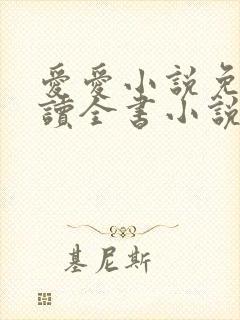 愛愛小說免
讀全書小說
基尼斯